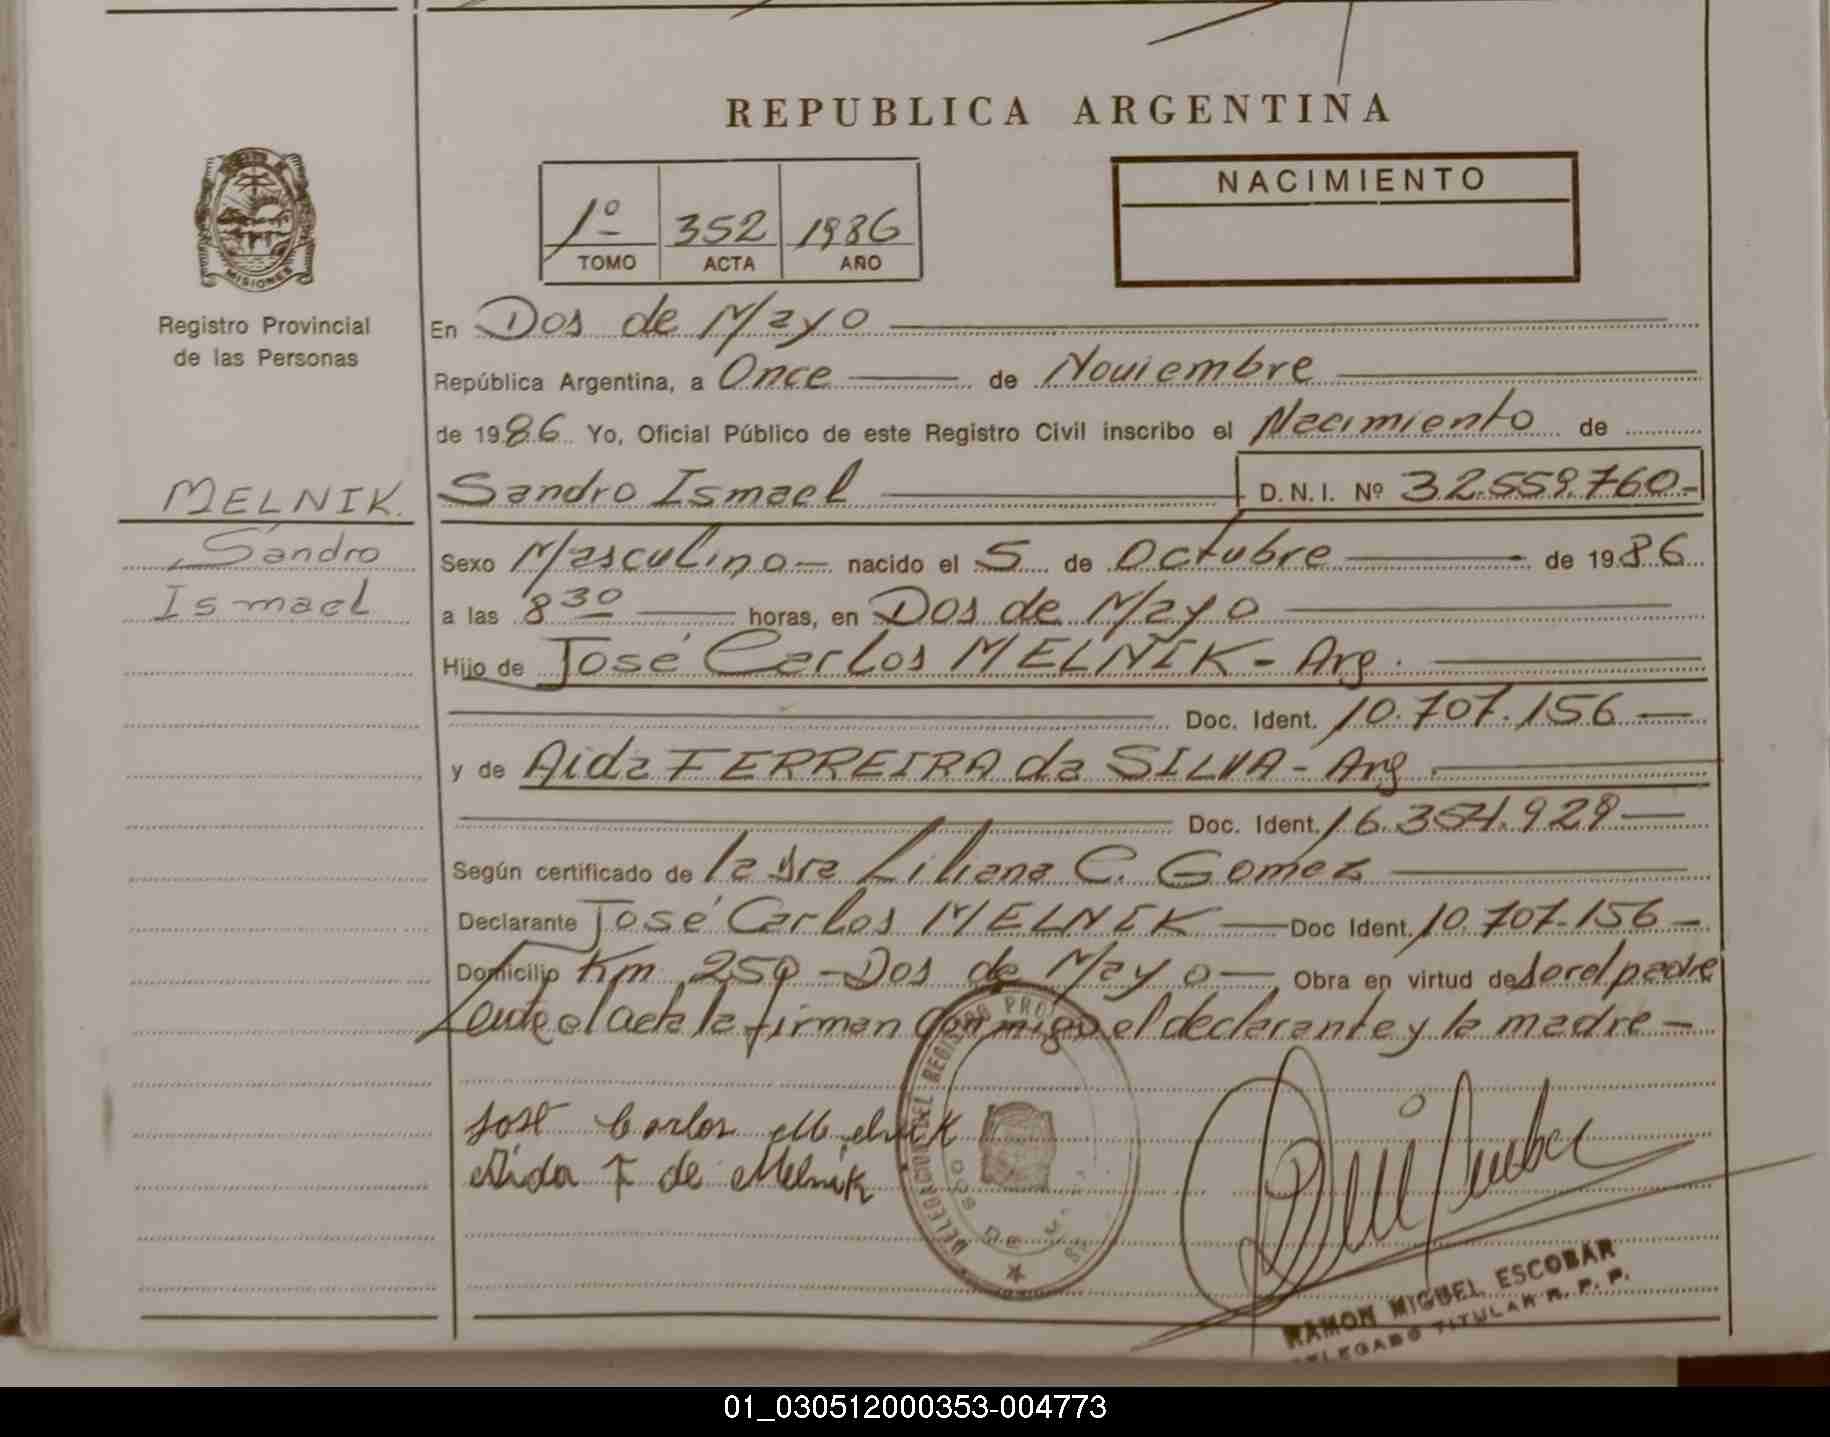 REPUBLICA ARGENTINA
1º 352 1986
TOMO ACTA AÑO
NACIMIENTO
MISIONES
Registro Provincial
de las Personas
En Dos de Mayo
República Argentina, a Once de Noviembre
de 1986 Yo, Oficial Público de este Registro Civil inscribo el Nacimiento de
MELNIK.
Sandro
Ismael
Sandro Ismael D.N.I. Nº 32.559.760-
Sexo Masculino nacido el 5 de Octubre de 1986
a las 8 30 horas, en Dos de Mayo
Hijo de José Carlos MELNIK - Arg.
Doc. Ident. 10.707.156
y de Aida FERREIRA da SILVA - Arg.
Doc. Ident. 16.354.929
Según certificado de la Dra Liliana C. Gomez
Declarante José Carlos MELNIK Doc Ident. 10.707.156
Domicilio Km 250 - Dos de Mayo Obra en virtud de ser el padre
el acta la firman conmigo el declarante y la madre
José Carlos Melnik
Aida F de Melnik
DELEGACION DEL REGISTRO
DOS DE
RAMON MIGUEL ESCOBAR
DELEGADO TITULAR R. P. P.
01_030512000353-004773